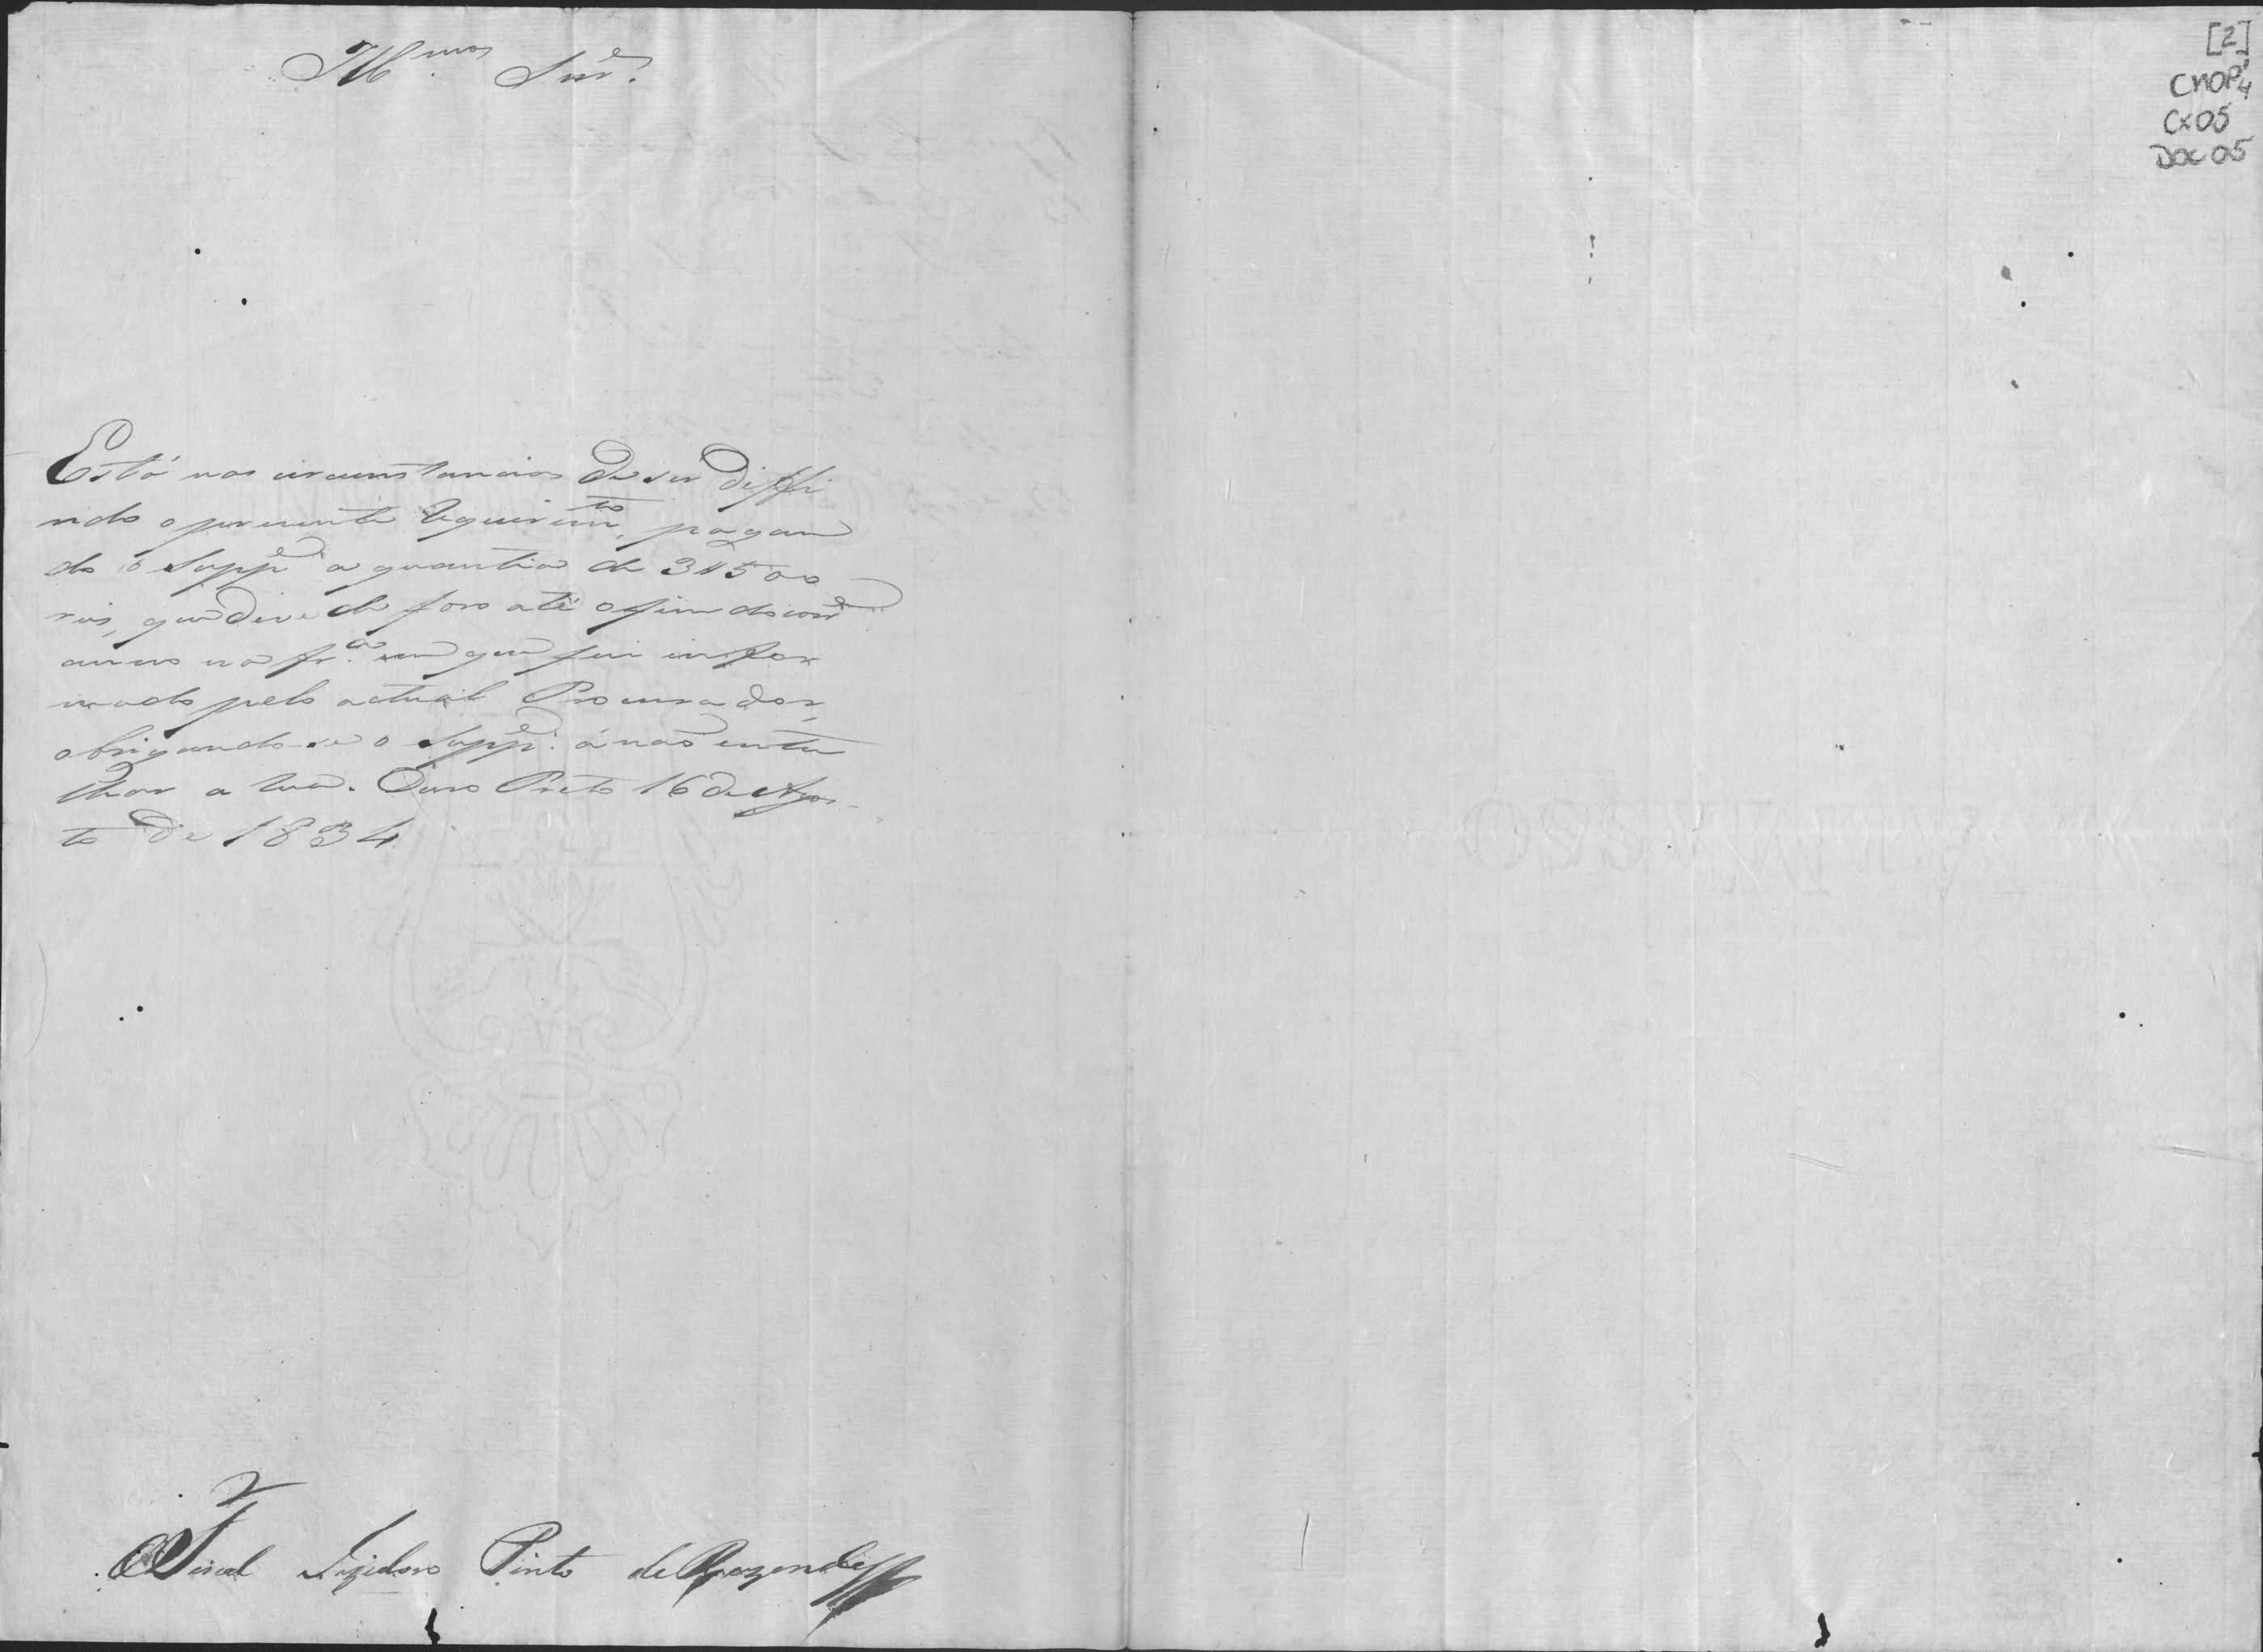 Ill.mos Snr.es
Está nas circunstancias de ser diffi
rido o prezente requerim.to, pagan
do o Supp.e a quantia de 3$500
reis, que deve de foro até o fim do corr.e
anno na fr.a em que fui infor
mado pelo actual Procurador,
obrigando-se o Supp.e á não entu
lhar a rua. Ouro Preto 16 de Agos
to de 1834
O Fiscal Izidoro Pinto de Rezende
[2]
CMOP
4
Cx 05
DOC 05